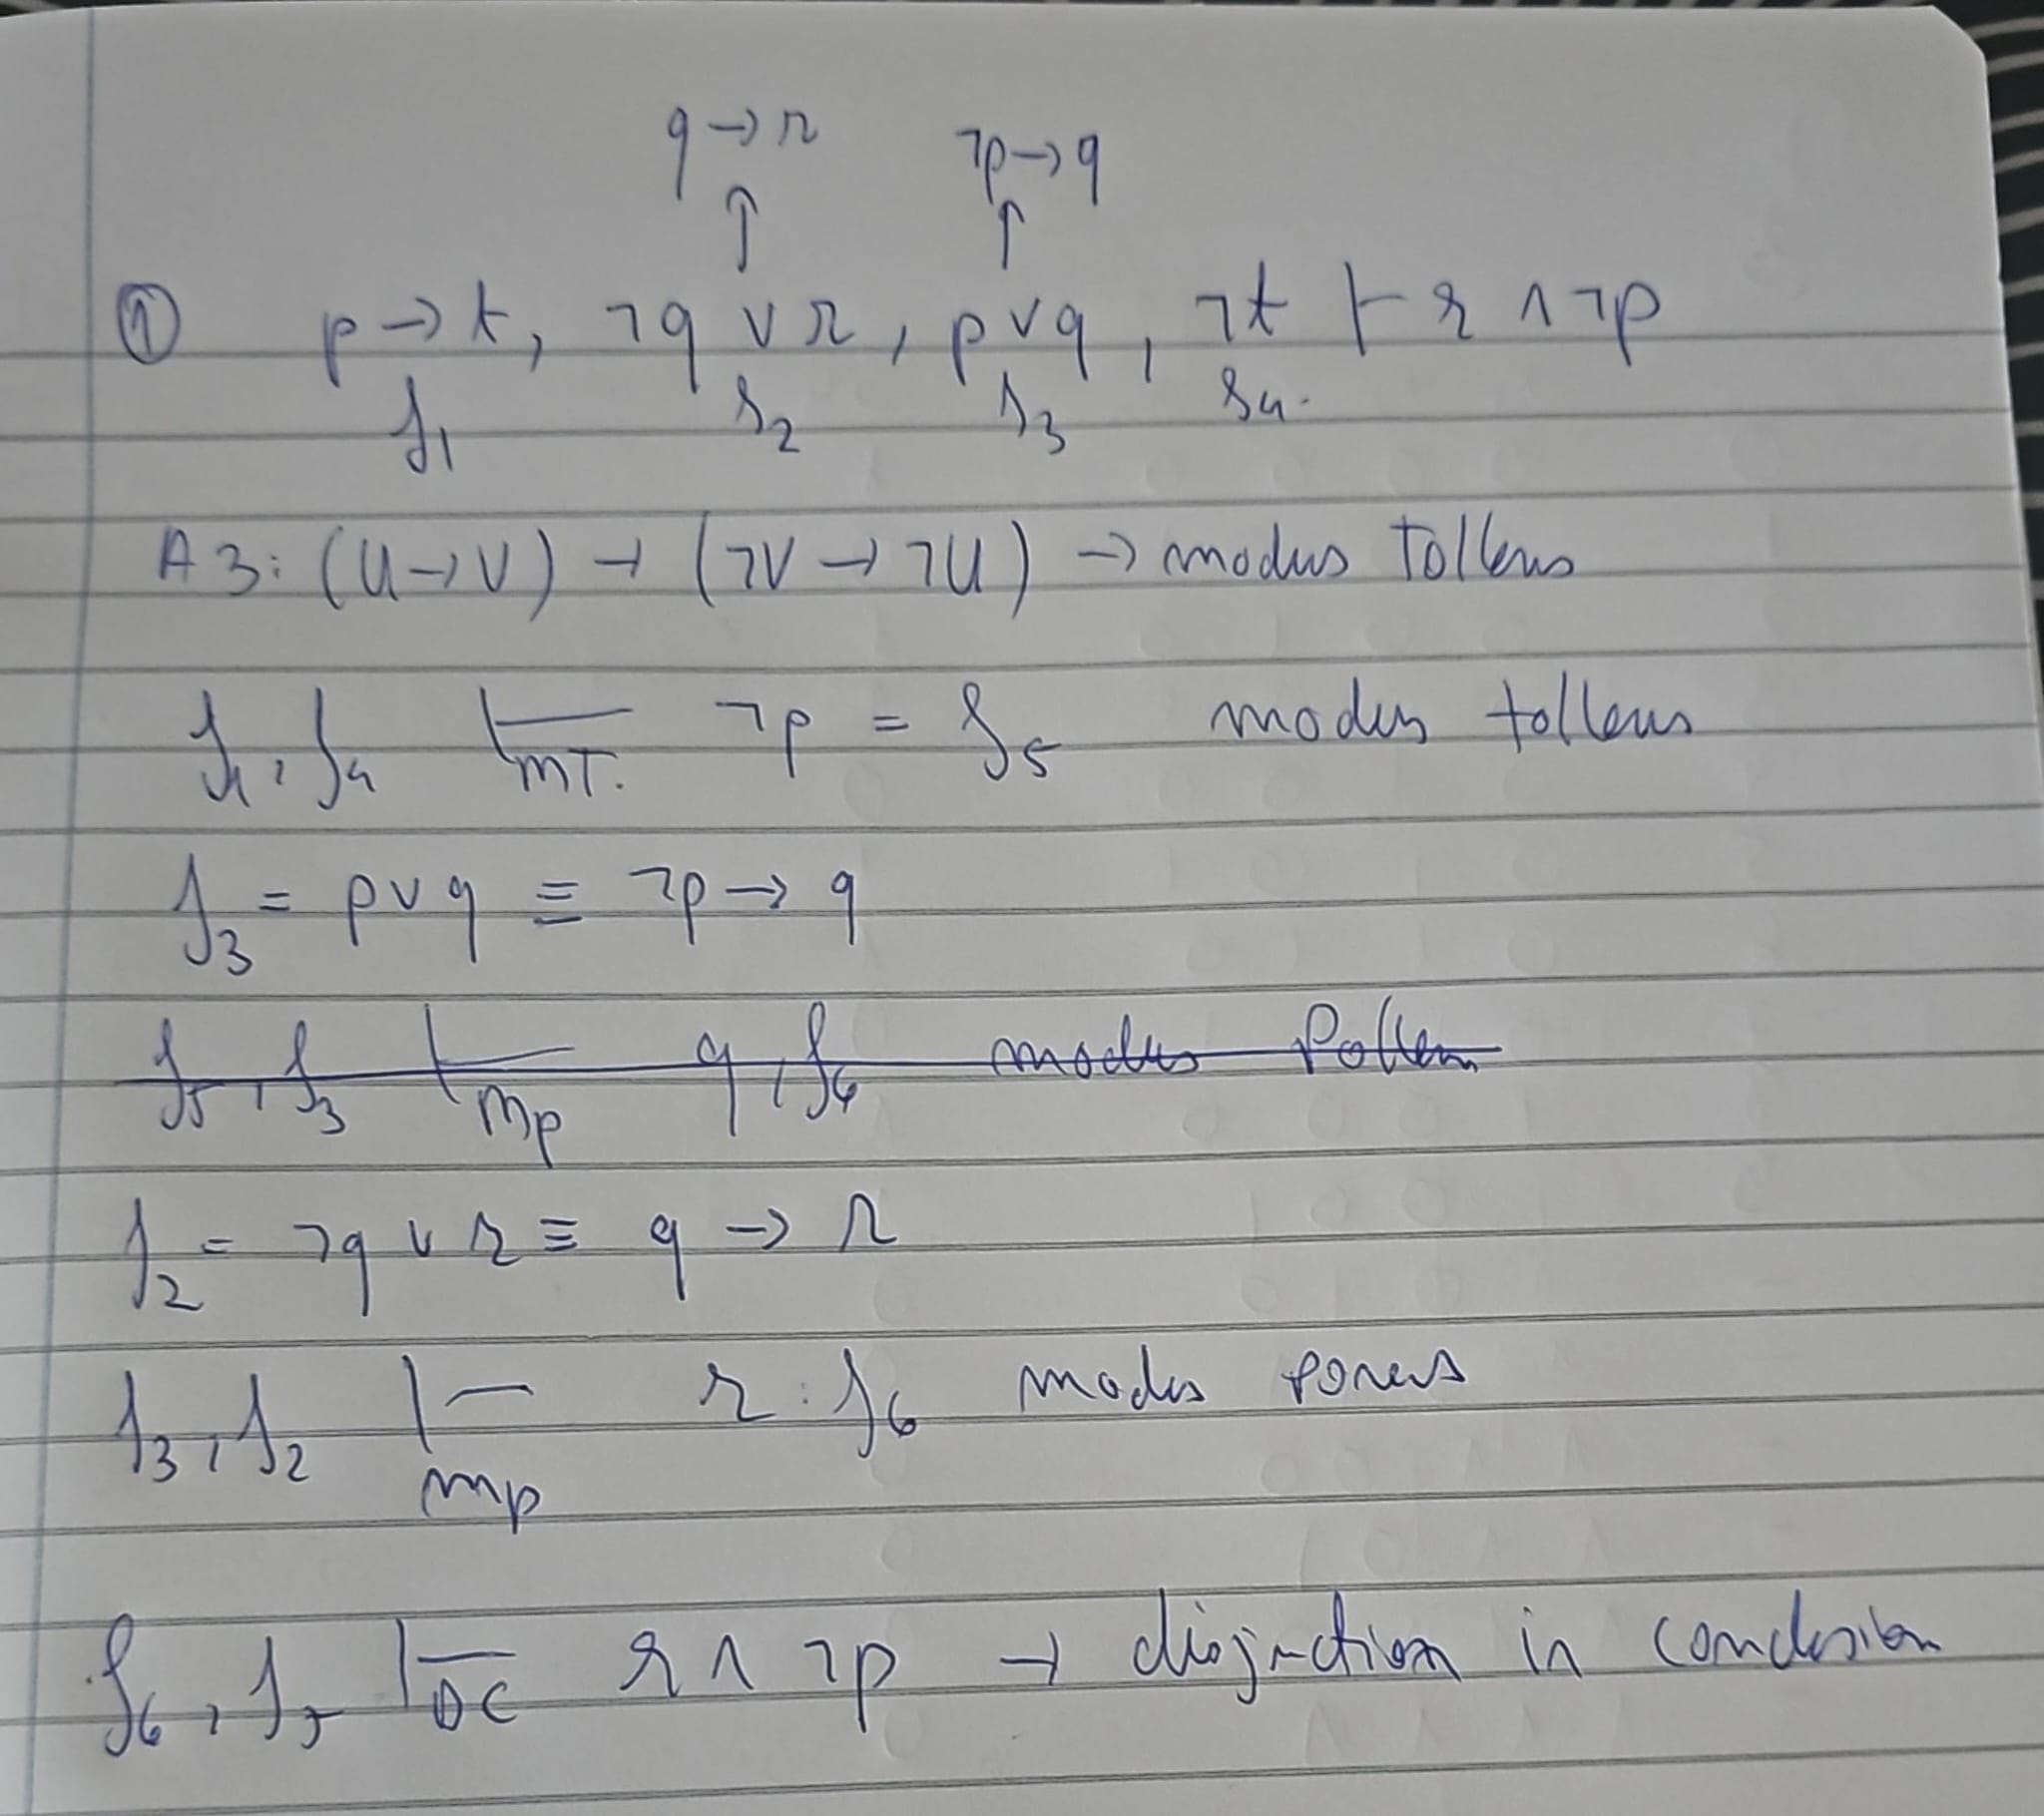 q → r ¬p → q
↑ ↑
① p → t, ¬q ∨ r, p ∨ q, ¬t ⊢ r ∧ ¬p
f1 f2 f3 f4.
A3: (U → V) → (¬V → ¬U) → modus Tollens
f1, f4 ⊢ MT. ¬p = f5 modus tollens
f3 = p ∨ q ≡ ¬p → q
f5, f3 ⊢ mp q, f6 modus Pollen
f2 = ¬q ∨ r ≡ q → r
f3, f2 ⊢ mp r : f6 modus ponens
f6, f5 ⊢ DC r ∧ ¬p → disjnction in conclusion